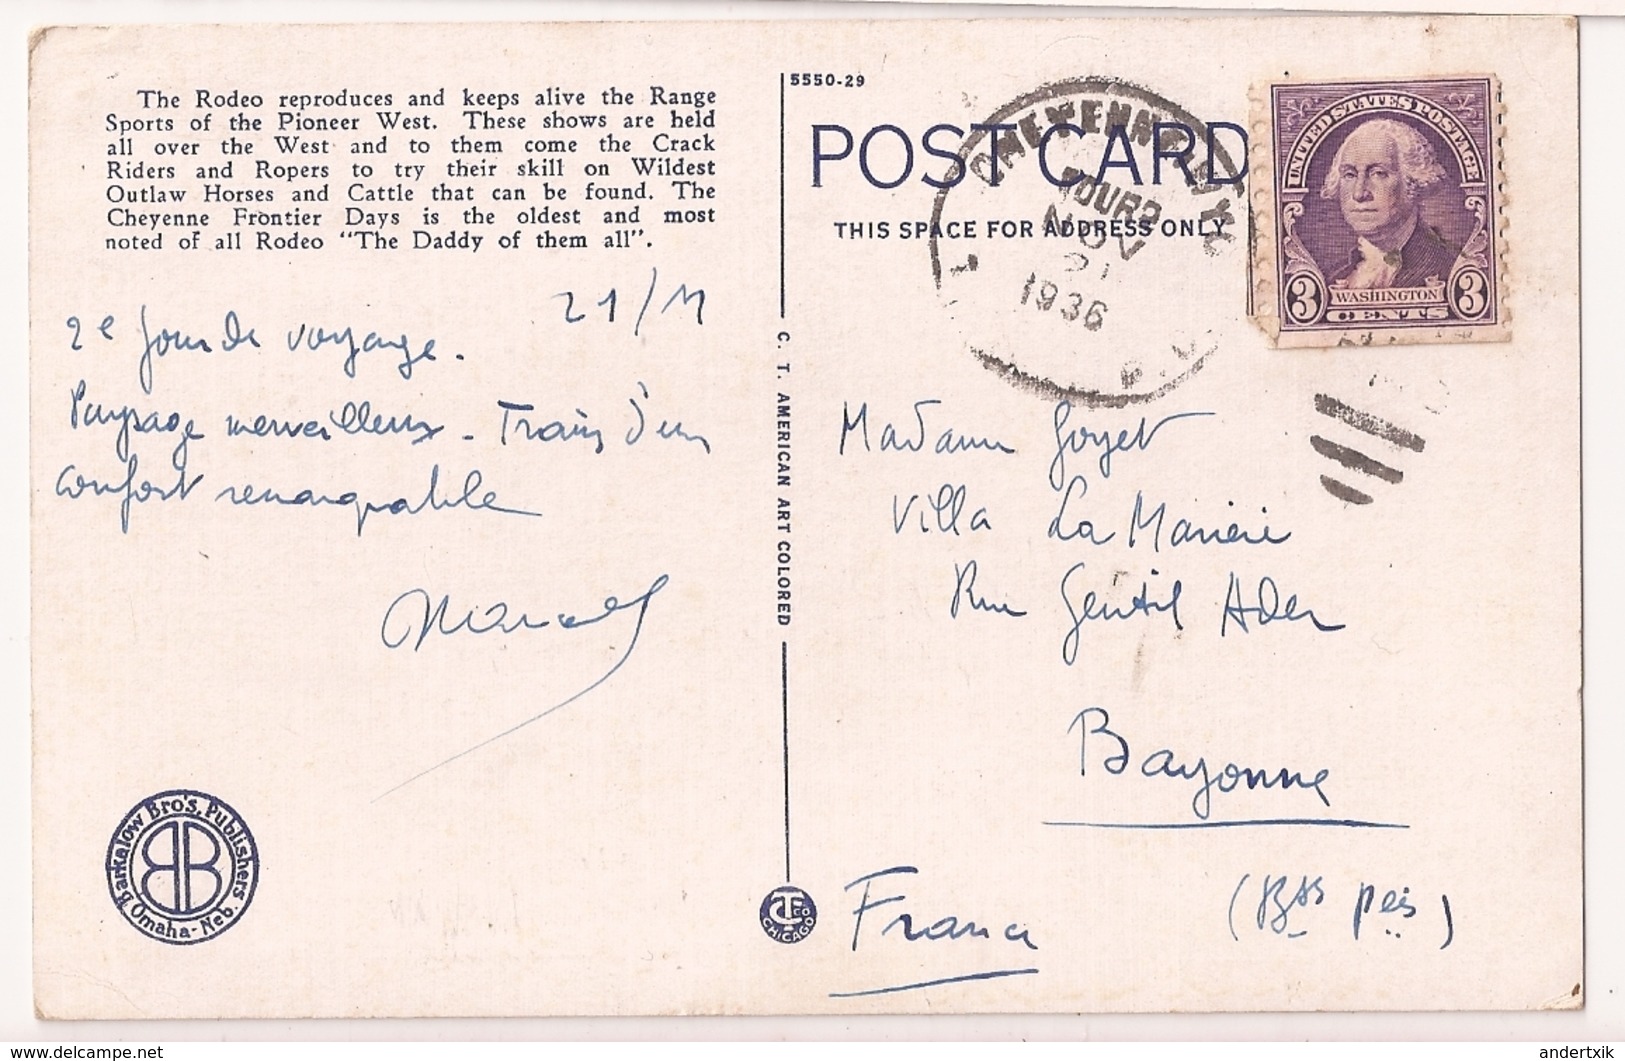 The Rodeo reproduces and keeps alive the Range
Sports of the Pioneer West. These shows are held
all over the West and to them come the Crack
Riders and Ropers to try their skill on Wildest
Outlaw Horses and Cattle that can be found. The
Cheyenne Frontier Days is the oldest and most
noted of all Rodeo "The Daddy of them all".
21/11
2e jour de voyage.
Paysage merveilleux. Train d'un
confort remarquable
Marcel
Barkalow Bro's, Publishers
Omaha-Neb.
5550-29
C. T. AMERICAN ART COLORED
CT CO
CHICAGO
POST CARD
THIS SPACE FOR ADDRESS ONLY
TOUR
NOV
21
1936
R.P.
UNITED STATES POSTAGE
3 WASHINGTON 3
CENTS
Madame Goyet
Villa La
Rue Gentil Ader
Bayonne
(Bsses Pées)
France
delcampe.net
andertxik